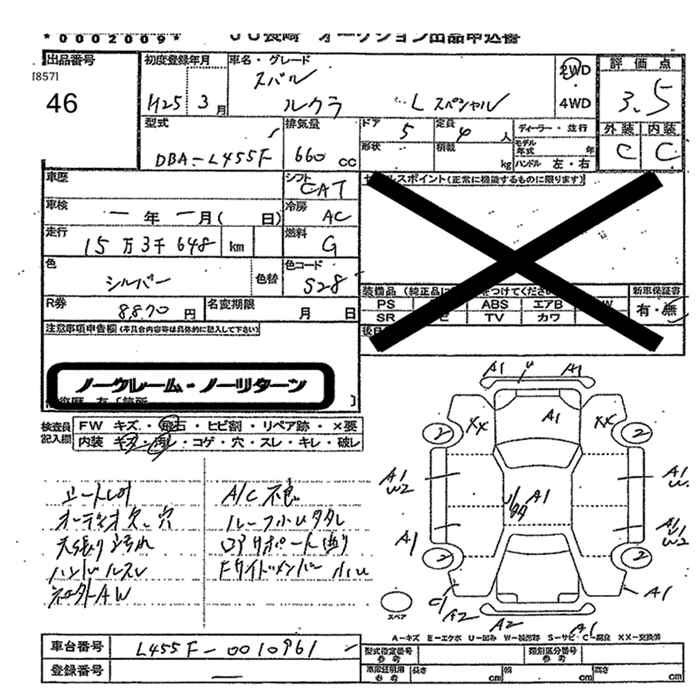 *0002009*
JU長崎 オークション出品申込書
出品番号
[857]
46
初度登録年月
H25 3月
車名・グレード
スバル
ルクラ Lスペシャル
2WD
4WD
評価点
3.5
外装 内装
C C
型式
DBA-L455F
排気量
660 cc
ドア 5
定員 4 人
ディーラー・並行
形状
積載 kg
モデル年式 年
ハンドル 左・右
車歴
シフト
CAT
車検
一年一月( 日)
冷房
AC
走行
15万3千648 km
燃料
G
色
シルバー
色替
色コード
S28
R券
8870円
名変期限
月 日
セールスポイント(正常に機能するものに限ります)
新車保証書
有・無
PS ABS エアB
SR TV カワ
注意事項申告欄(本具合内容等は具体的に記入して下さい)
ノークレーム・ノーリターン
検査員記入欄
FW キズ・飛石・ヒビ割・リペア跡・×要
内装 キズ・汚レ・コゲ・穴・スレ・キレ・破レ
シートヒョウ
オーディオ欠、穴
天張り汚れ
ハンドルスレ
社外AW
A/C不良
ルーフ小Uタタレ
コアサポート曲り
Fサイドメンバー小U
A1 U A1
A1
XX XX
2 2
A1
W2
A1
W
U/99 A1
A1
A1
W2
2 2
C1
A2
A2 A1
A1
スペア
A-キズ E-エクボ U-凹み W-補修跡 S-サビ C-腐食 XX-交換済
車台番号
L455F-0010961
登録番号
一
型式指定番号
参考
類別区分番号
参考
車庫証明用
参考
長さ
幅
高さ